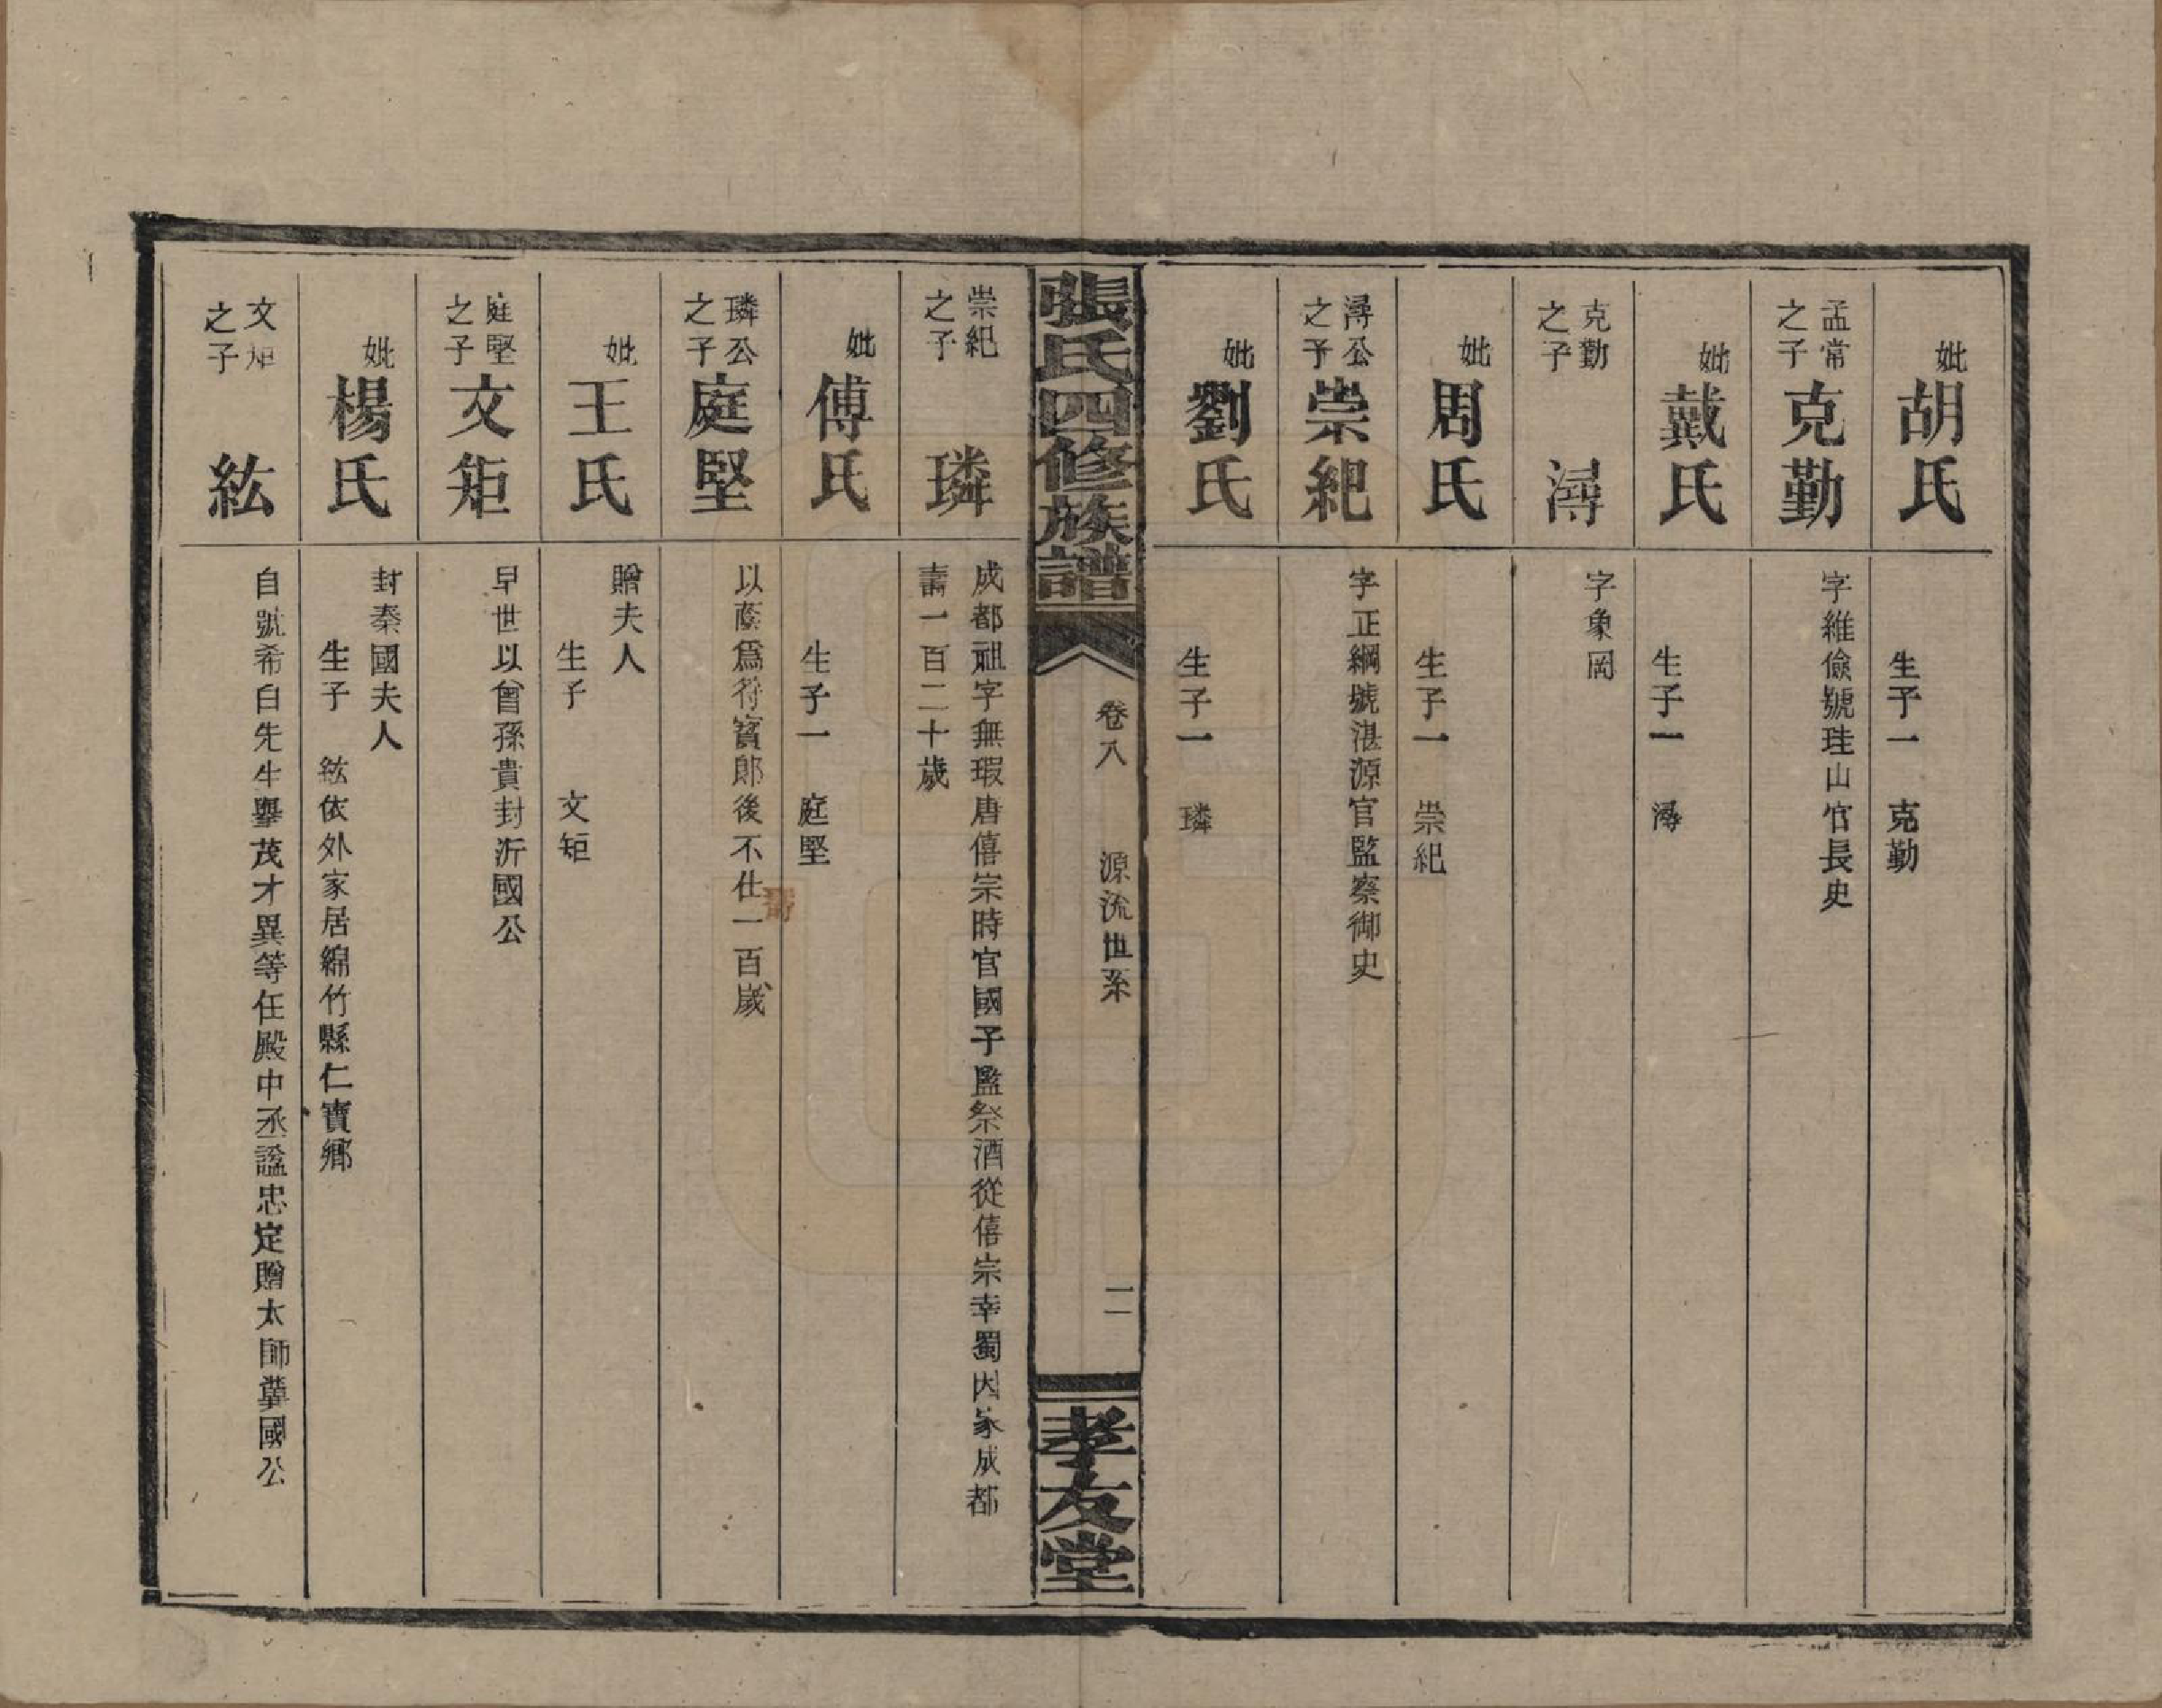 妣
胡氏
生子一　克勤
孟常
之子
克勤
字維儉號珪山官長史
妣
戴氏
生子一　潯
克勤
之子
潯
字象岡
妣
周氏
生子一　崇紀
潯公
之子
崇紀
字正綱號湛源官監察御史
妣
劉氏
生子一　璘
張氏四修族譜
卷八　源流世系
二
孝友堂
崇紀
之子
璘
成都祖字無瑕唐僖宗時官國子監祭酒從僖宗幸蜀因家成都
壽一百二十歲
妣
傅氏
生子一　庭堅
璘公
之子
庭堅
以蔭爲符寶郎後不仕一百歲
壽
妣
王氏
贈夫人
生子　文矩
庭堅
之子
文矩
早世以曾孫貴封沂國公
妣
楊氏
封秦國夫人
生子　紘依外家居綿竹縣仁賓鄉
文矩
之子
紘
自號希白先生擧茂才異等任殿中丞諡忠定贈太師冀國公